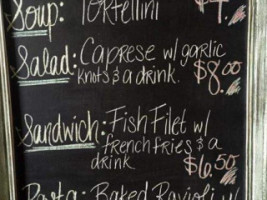 Soup: Tortellini
Salad: Caprese w/ garlic
knots & a drink. $8.00
Sandwich: Fish Filet w/
french fries & a
drink $6.50
Pasta: Baked Ravioli w/